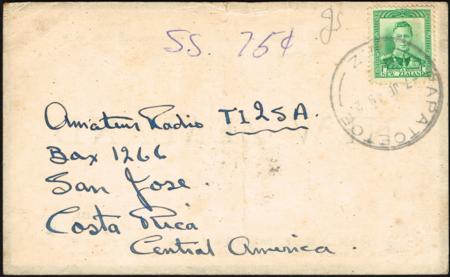 SS. 75¢
NEW ZEALAND
PAPATOETOE
N.Z.
Amateur Radio TI2SA.
Box 1266
San Jose.
Costa Rica
Central America.